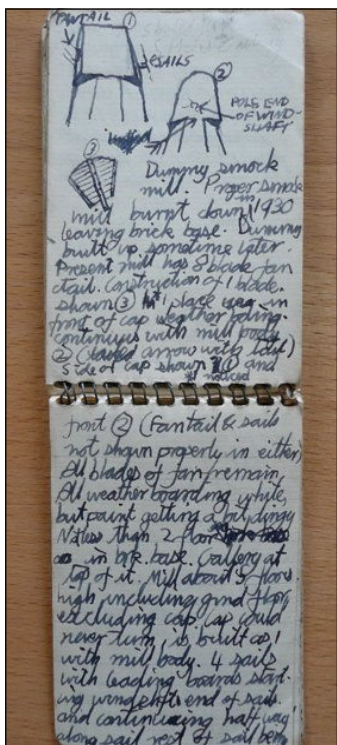 FANTAIL ①
SAILS
②
POLE END
OF WIND-
SHAFT
③
Dummy smock
mill. Proper smock
mill burnt down in 1930
leaving brick base. Dummy
built up sometime later.
Present mill has 8 blade fan
tail. Construction of 1 blade
shown ③ 1 place in
front of cap weather boarding
continuous with mill body
② (lower arrow with tail)
Side of cap shown ① and
noticed
front ② (Fantail & sails
not shown properly in either)
All blades of fan remain,
All weather boarding white,
but paint getting a bit dingy
No less than 2 floor
in brk. base. Gallery at
top of it. Mill about 5 floors
high including grnd floor,
excluding cap. Cap could
never turn is built as 1
with mill body. 4 sails
with leading boards start
ing windshft end of sails
and continuing half way
along sail rest of sail being